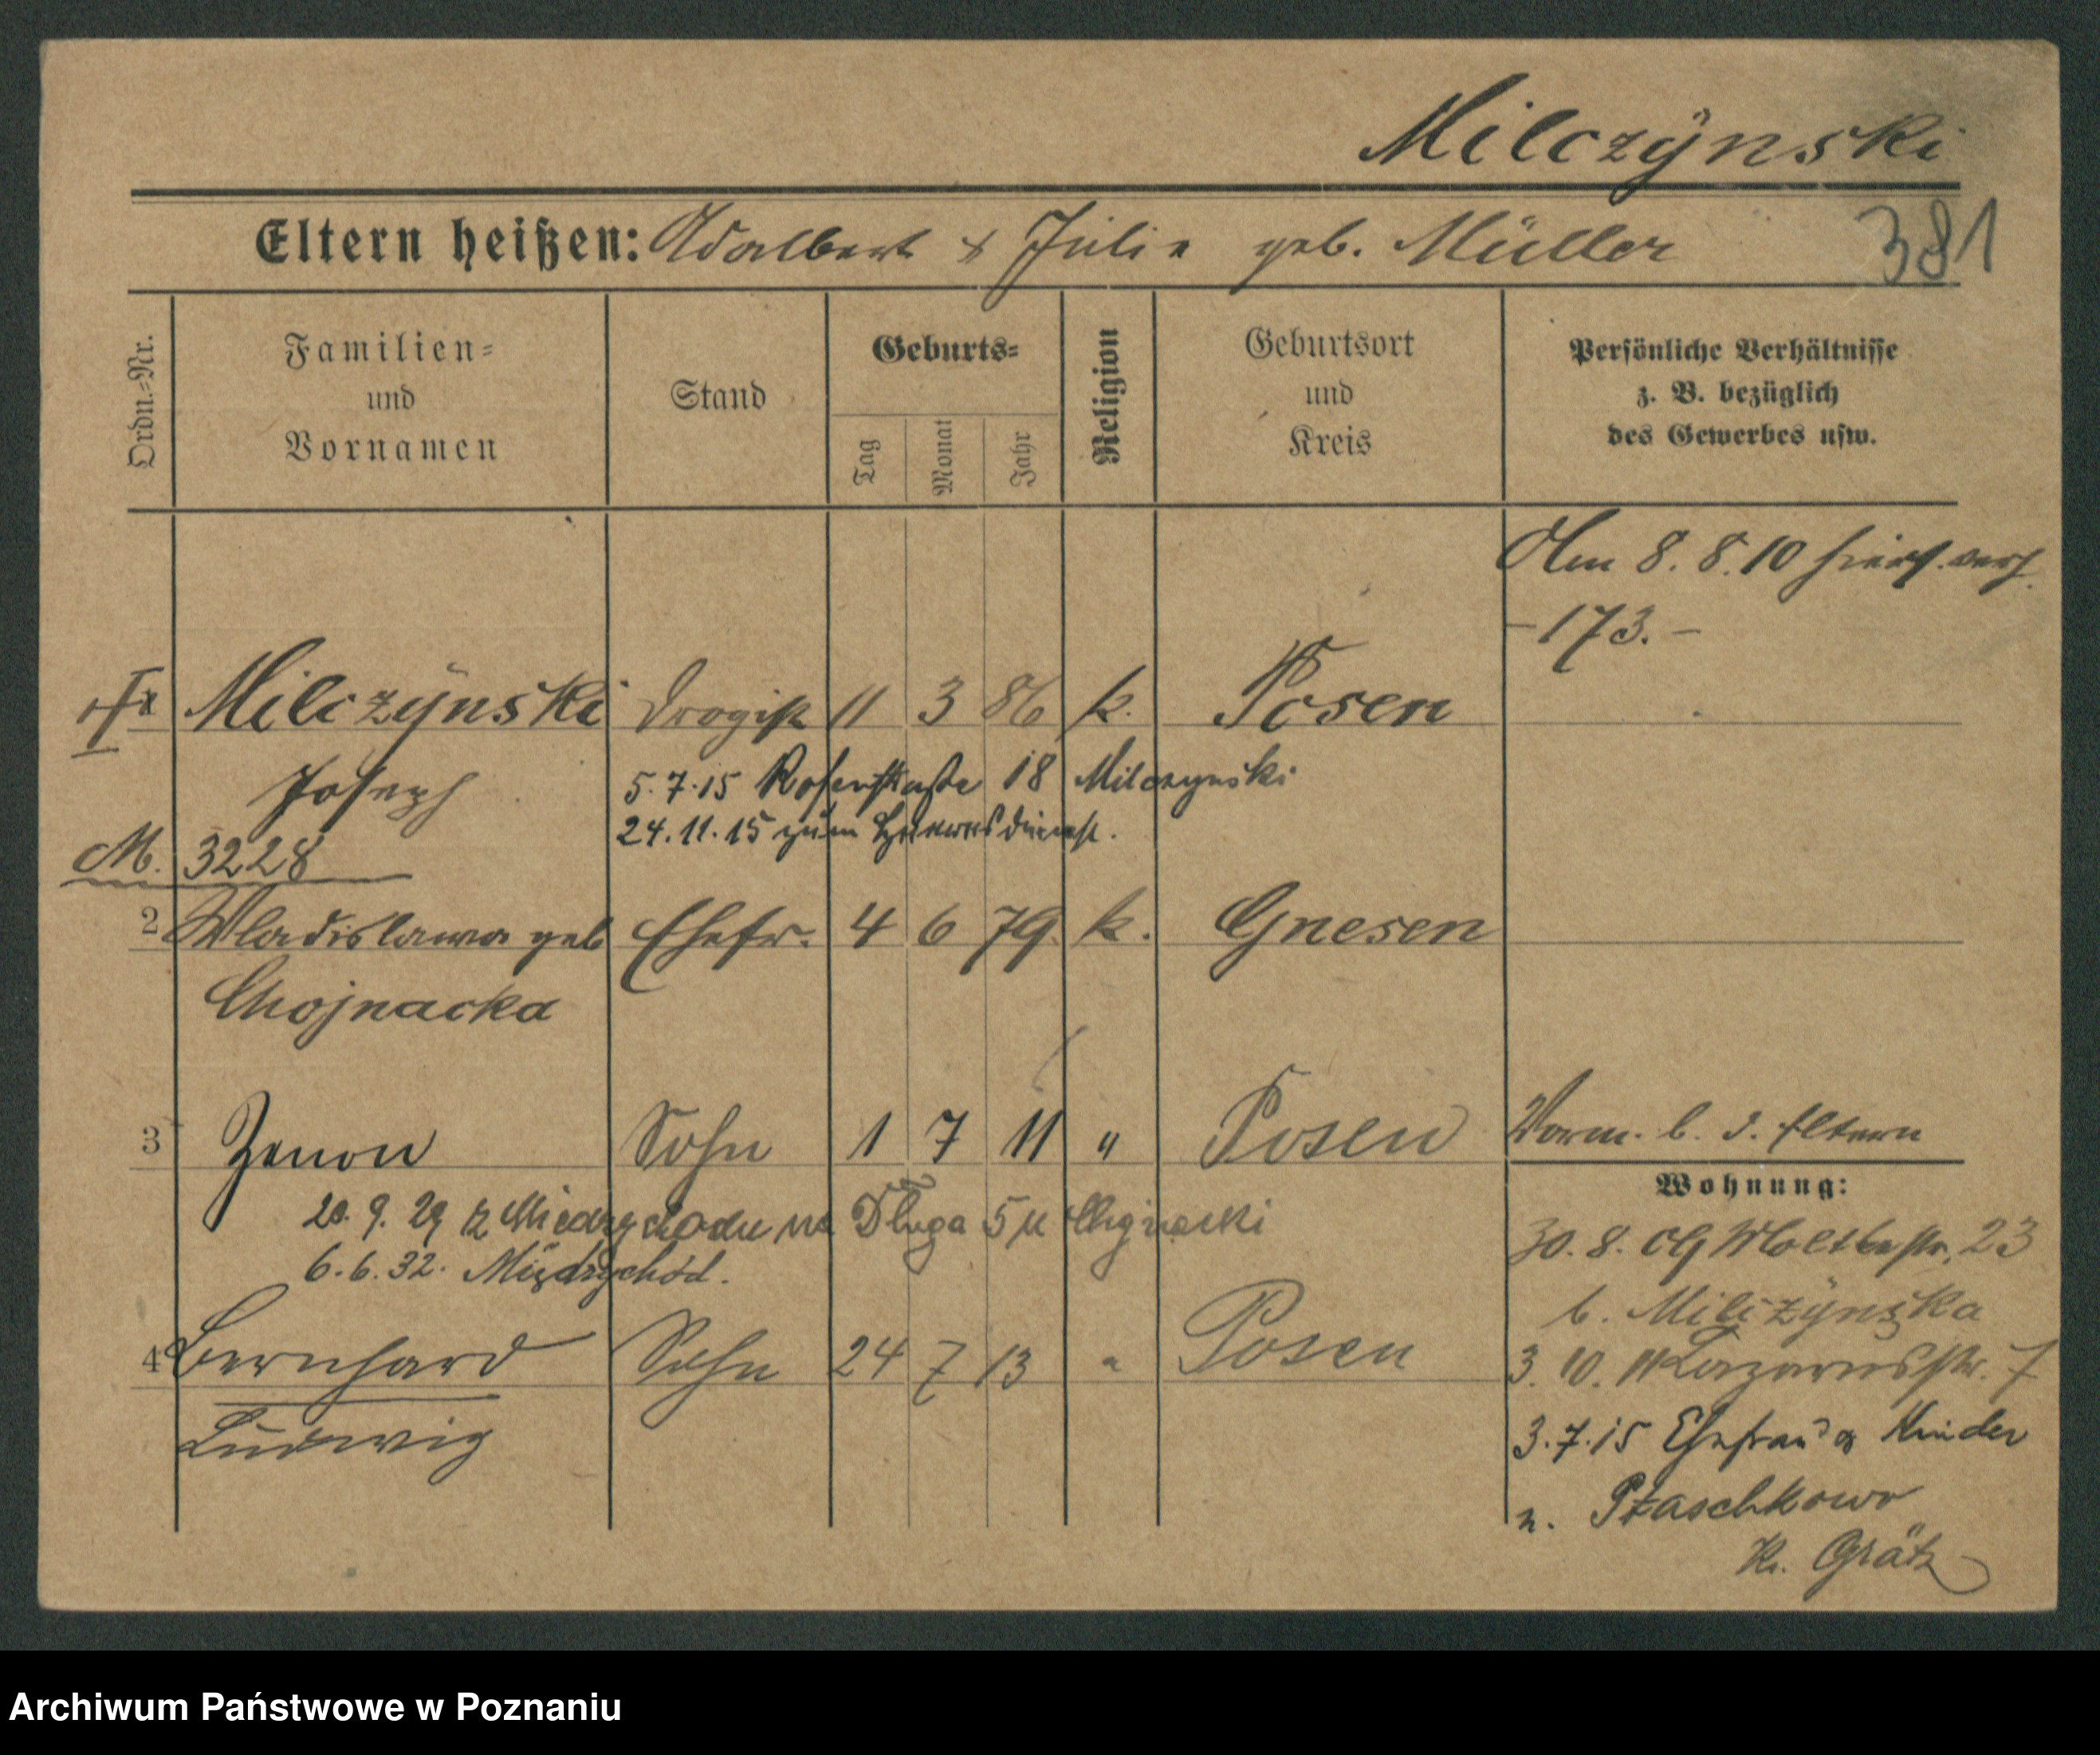 Milczÿnski
Eltern heißen: Adalbert & Julie geb. Müller 381
Ordn.-Nr.
Familien- und Vornamen
Stand
Geburts-
Tag Monat Jahr
Religion
Geburtsort und Kreis
Persönliche Verhältnisse
z. B. bezüglich
des Gewerbes usw.
Am 8. 8. 10 hierf. verh.
- 173. -
Milczÿnski Drogist 11 3 86 k. Posen
Joseph
5.7.15 Rosenstraße 18 Milczynski
24.11.15 zum Heeresdienst.
M. 3228
2 Wladislawa geb Ehefr. 4 6 79. k. Gnesen
Chojnacka
3 Zenon Sohn 1 7 11 " Posen Vorm. b. d. Eltern
20. 9. 29 z Miedzychodu na Długa 5 u
6.6.32. Międzychód.
4 Bernhard Sohn 24 7 13 " Posen
Ludwig
Wohnung:
30. 8. 23
b. Milczÿnska
3. 10. 11 Lazarusstr. 7
3.7.15 Ehefrau & Kinder
n. Ptaschkowo
Kr. Grätz
Archiwum Państwowe w Poznaniu